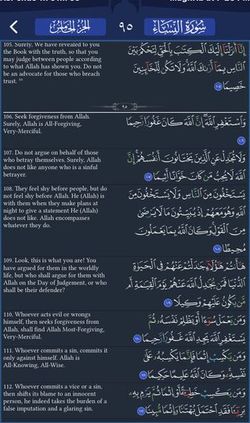 الجزء الخامس
٩٥
سورة النساء
105. Surely, We have revealed to
you the Book with the truth, so that you
may judge between people according
to what Allah has shown you. Do not
be an advocate for those who breach
trust.
إِنَّا أَنزَلْنَا إِلَيْكَ الْكِتَابَ بِالْحَقِّ لِتَحْكُمَ بَيْنَ
النَّاسِ بِمَا أَرَاكَ اللَّهُ وَلَا تَكُن لِّلْخَائِنِينَ
خَصِيمًا
٩٥
106. Seek forgiveness from Allah.
Surely, Allah is All-Forgiving,
Very-Merciful.
وَاسْتَغْفِرِ اللَّهَ إِنَّ اللَّهَ كَانَ غَفُورًا رَّحِيمًا
107. Do not argue on behalf of those
who betray themselves. Surely, Allah
does not like anyone who is a sinful
betrayer.
وَلَا تُجَادِلْ عَنِ الَّذِينَ يَخْتَانُونَ أَنفُسَهُمْ إِنَّ
اللَّهَ لَا يُحِبُّ مَن كَانَ خَوَّانًا أَثِيمًا
108. They feel shy before people, but do
not feel shy before Allah. He (Allah) is
with them when they make plans at
night to give a statement He (Allah)
does not like. Allah encompasses
whatever they do.
يَسْتَخْفُونَ مِنَ النَّاسِ وَلَا يَسْتَخْفُونَ مِنَ
اللَّهِ وَهُوَ مَعَهُمْ إِذْ يُبَيِّتُونَ مَا لَا يَرْضَىٰ
مِنَ الْقَوْلِ وَكَانَ اللَّهُ بِمَا يَعْمَلُونَ
مُحِيطًا
109. Look, this is what you are! You
have argued for them in the worldly
life, but who shall argue for them with
Allah on the Day of Judgement, or who
shall be their defender?
هَا أَنتُمْ هَٰؤُلَاءِ جَادَلْتُمْ عَنْهُمْ فِي الْحَيَاةِ
الدُّنْيَا فَمَن يُجَادِلُ اللَّهَ عَنْهُمْ يَوْمَ الْقِيَامَةِ أَم
مَّن يَكُونُ عَلَيْهِمْ وَكِيلًا
110. Whoever acts evil or wrongs
himself, then seeks forgiveness from
Allah, shall find Allah Most-Forgiving,
Very-Merciful.
وَمَن يَعْمَلْ سُوءًا أَوْ يَظْلِمْ نَفْسَهُ ثُمَّ
يَسْتَغْفِرِ اللَّهَ يَجِدِ اللَّهَ غَفُورًا رَّحِيمًا
111. Whoever commits a sin, commits it
only against himself. Allah is
All-Knowing, All-Wise.
وَمَن يَكْسِبْ إِثْمًا فَإِنَّمَا يَكْسِبُهُ عَلَىٰ
نَفْسِهِ وَكَانَ اللَّهُ عَلِيمًا حَكِيمًا
112. Whoever commits a vice or a sin,
then shifts its blame to an innocent
person, he indeed takes the burden of a
false imputation and a glaring sin.
وَمَن يَكْسِبْ خَطِيئَةً أَوْ إِثْمًا ثُمَّ يَرْمِ بِهِ
بَرِيئًا فَقَدِ احْتَمَلَ بُهْتَانًا وَإِثْمًا مُّبِينًا